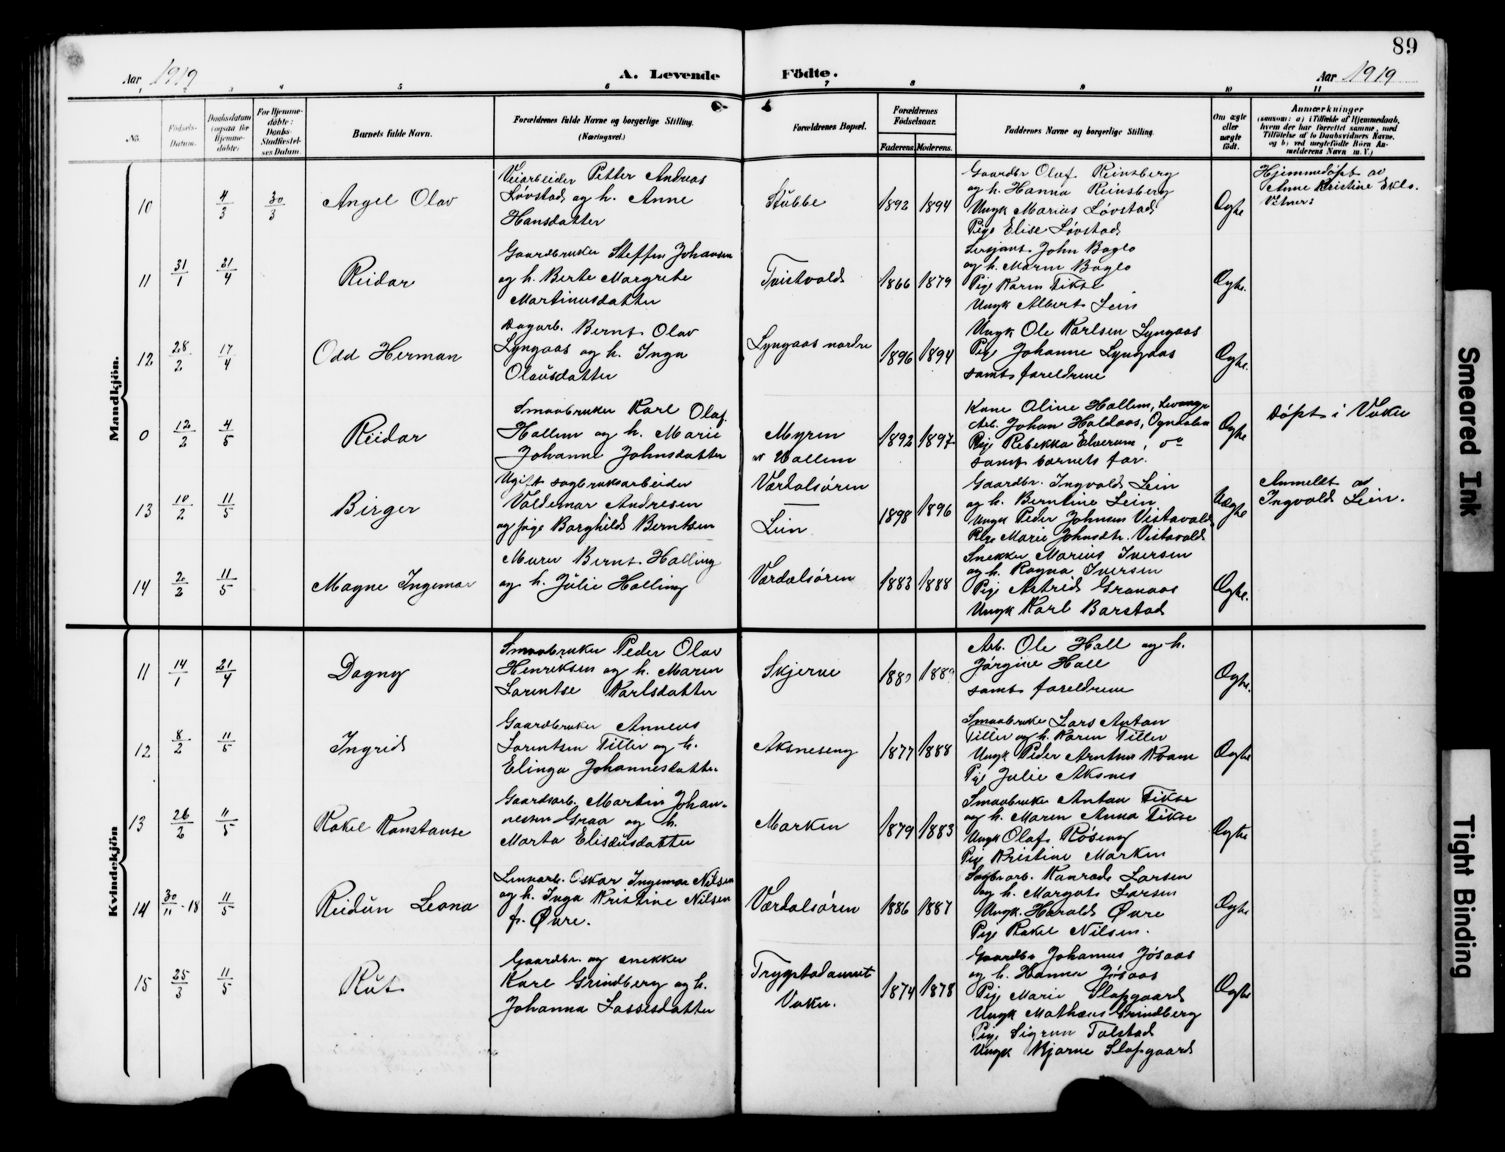 89
Aar 1919
A. Levende Födte.
Aar 1919
1 2 3 4 5 6 7 8 9 10 11
No.
Födsels-Datum.
Daabsdatum (ogsaa for Hjemmedöbte)
For Hjemmedöbte: Daabs-Stadfæstelses Datum.
Barnets fulde Navn.
Forældrenes fulde Navne og borgerlige Stilling. (Næringsvei.)
Forældrenes Bopæl.
Forældrenes Födselsaar.
Faderens. Moderens.
Faddernes Navne og borgerlig Stilling.
Om ægte eller uægte födt.
Anmærkninger
(saasom: a) i Tilfælde af Hjemmedaab,
hvem der har forrettet samme, med
Tilföielse af to Daabsvidners Navne,
og b) ved uægtefödte Börn Anmelderens Navn m. V.)
Mandkjön.
10
4/3
30/3
Angel Olav
Veiarbeider Petter Andreas
Løvstad og h. Anne
Hansdatter
Stubbe
1892 1894
Gaardbr Olaf Reinsberg
og h. Hanna Reinsberg
Ungk Marius Løvstad
Pige Elise Løvstad
Ægte
Hjemmedøpt av
Anne Kristine Eklo.
Vitner:
11
31/1
21/4
Reidar
Gaardbruker Steffen Johansen
og h. Berte Margrete
Martinusdatter
Tvistvold
1866 1879
Sersjant John Baglo
og h. Maren Baglo
Pige Karen Tikse
Ungk Albert Lein
Ægte.
12
28/2
17/4
Odd Herman
Dagarb. Bernt Olav
Lyngaas og h. Inga
Olausdatter
Lyngaas nordre
1896 1894
Ungk Ole Karlsen Lyngaas
Pige Johanne Lyngaas
samt foreldrene
Ægte.
0
12/2
4/5
Reidar
Smaabruker Karl Olaf
Hallem og h. Marie
Johanne Johnsdatter
Myren
av Hallem
1892 1897
Kone Aline Hallem, Levanger
Arb. Johan Haldaas, Ogndalen
Pige Rebekka Elverum,
samt barnets far.
Ægte
Døpt i Vuku
13
10/2
11/5
Birger
Ugift sagbruksarbeider
Valdemar Andresen
og pige Borghild Berntsen
Værdalsøren
Lein
1898 1896
Gaardbr. Ingvald Lein
og h. Berntine Lein
Ungk Peder Johnsen Vistavold
Pige Marie Johnsdtr. Vistavold
Uægte
Anmeldt av
Ingvald Lein.
14
2/2
11/5
Magne Ingemar
Murer Bernt Halling
og h. Julie Halling
Værdalsøren
1883 1888
Snekker Marius Iversen
og h. Ragna Iversen
Pige Astrid Granaas
Ungk Karl Barstad
Ægte.
Kvindekjön
11
14/1
21/4
Dagny
Smaabruker Peder Olav
Henriksen og h. Maren
Lorentse Karlsdatter
Skjerve
Arb. Ole Hall og h.
Jørgine Hall
samt foreldrene
Ægte.
12
8/2
11/5
Ingrid
Gaardbruker Anneus
Lorentsen Tiller og h.
Elinga Johannesdatter
Aksneseng
1877 1888
Smaabruker Lars Anton
Tiller og h. Karen Tiller
Ungk Peder Arntsen Kvam
Pige Julie Aksnes
Ægte
13
26/2
11/5
Rakel Konstanse
Gaardsarb. Martin Johannessen
Graa og h.
Marta Eliseusdatter
Marken
1879 1883
Smaabruker Anton Tikse
og h. Maren Anna Tikse
Ungk Olaf Røseng
Pige Kristine Marken
Ægte
14
30/11-18
11/5
Reidun Leona
Linearb. Oskar Ingemar Nilsen
og h. Inga Kristine Nilsen
f. Øvre.
Værdalsøren
1886 1887
Sagbr.arb. Konrad Larsen
og h. Margot Larsen
Ungk. Harald Øvre
Pige Rakel Nilsen.
Ægte
15
25/3
11/5
Rut
Gaardbr. og snekker
Karl Grindberg og h.
Johanna Lassesdatter
Trygstadaunet
Vuku.
1874 1878
Gaardbr Johannes Jøsaas
og h. Hanna Jøsaas
Pige Marie Slapgaard
Ungk Mathæus Grindberg
Pige Sigrun Tolstad
Ungk Bjarne Slapgaard
Ægte
Smeared Ink
Tight Binding